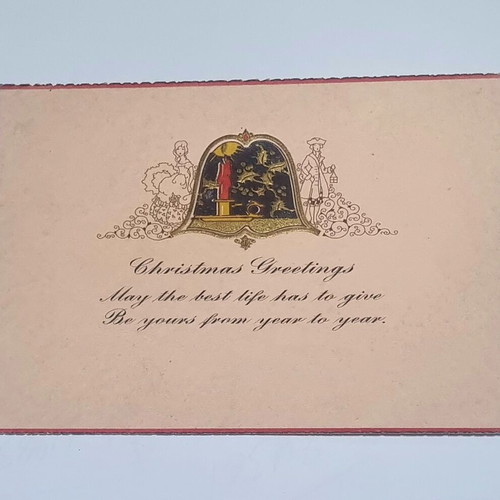 Christmas Greetings
May the best life has to give
Be yours from year to year.